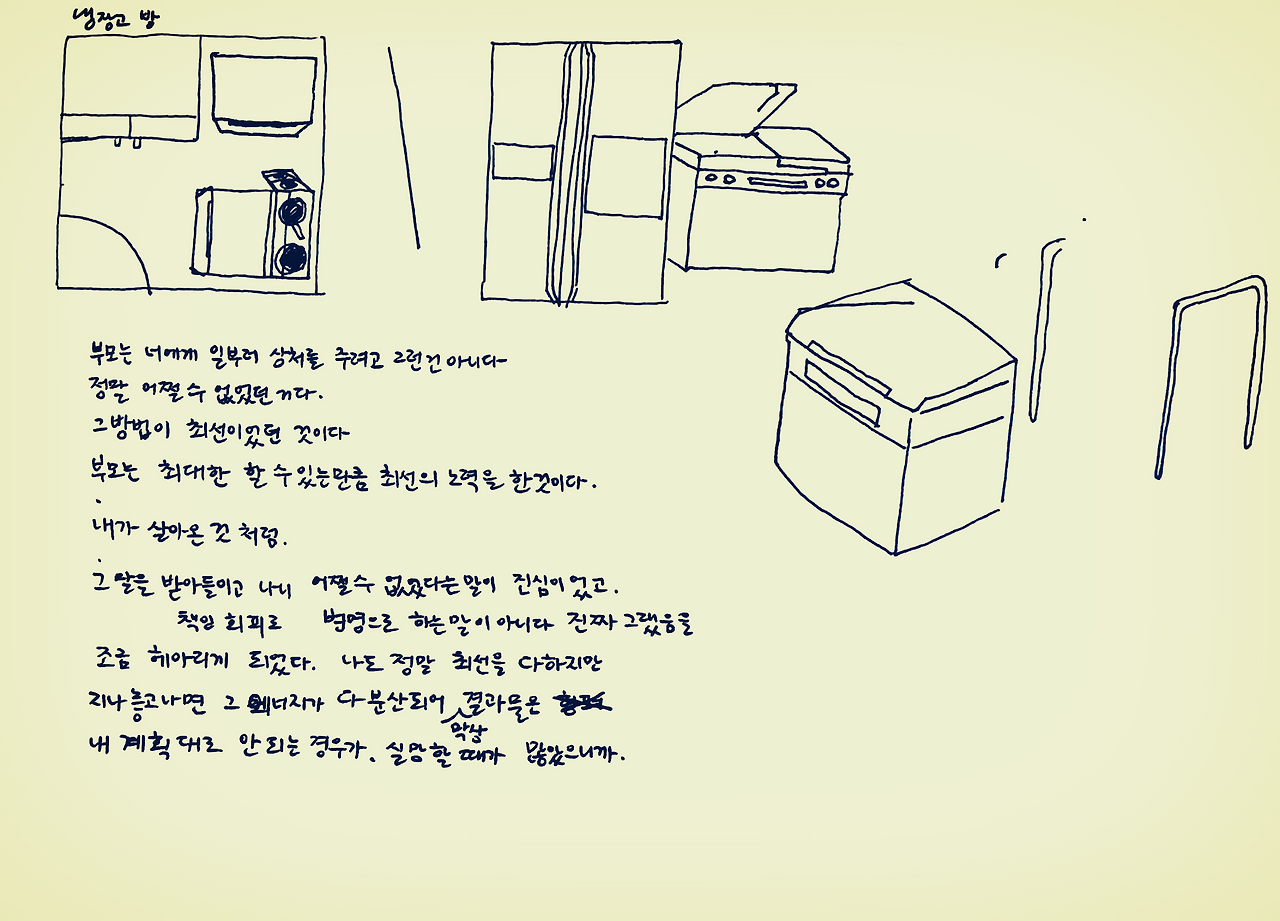 냉장고 방
부모는 너에게 일부러 상처를 주려고 그런건 아니다
정말 어쩔 수 없었던 거다.
그방법이 최선이었던 것이다
부모는 최대한 할 수 있는만큼 최선의 노력을 한것이다.
내가 살아온 것 처럼.
그 말을 받아들이고 나니 어쩔수 없었다는말이 진심이었고.
책임 회피로 변명으로 하는말이 아니다 진짜 그랬음을
조금 헤아리게 되었다. 나도 정말 최선을 다하지만
지나놓고나면 그 에너지가 다 분산되어 막상 결과물은
내 계획대로 안되는 경우가. 실망할 때가 많았으니까.